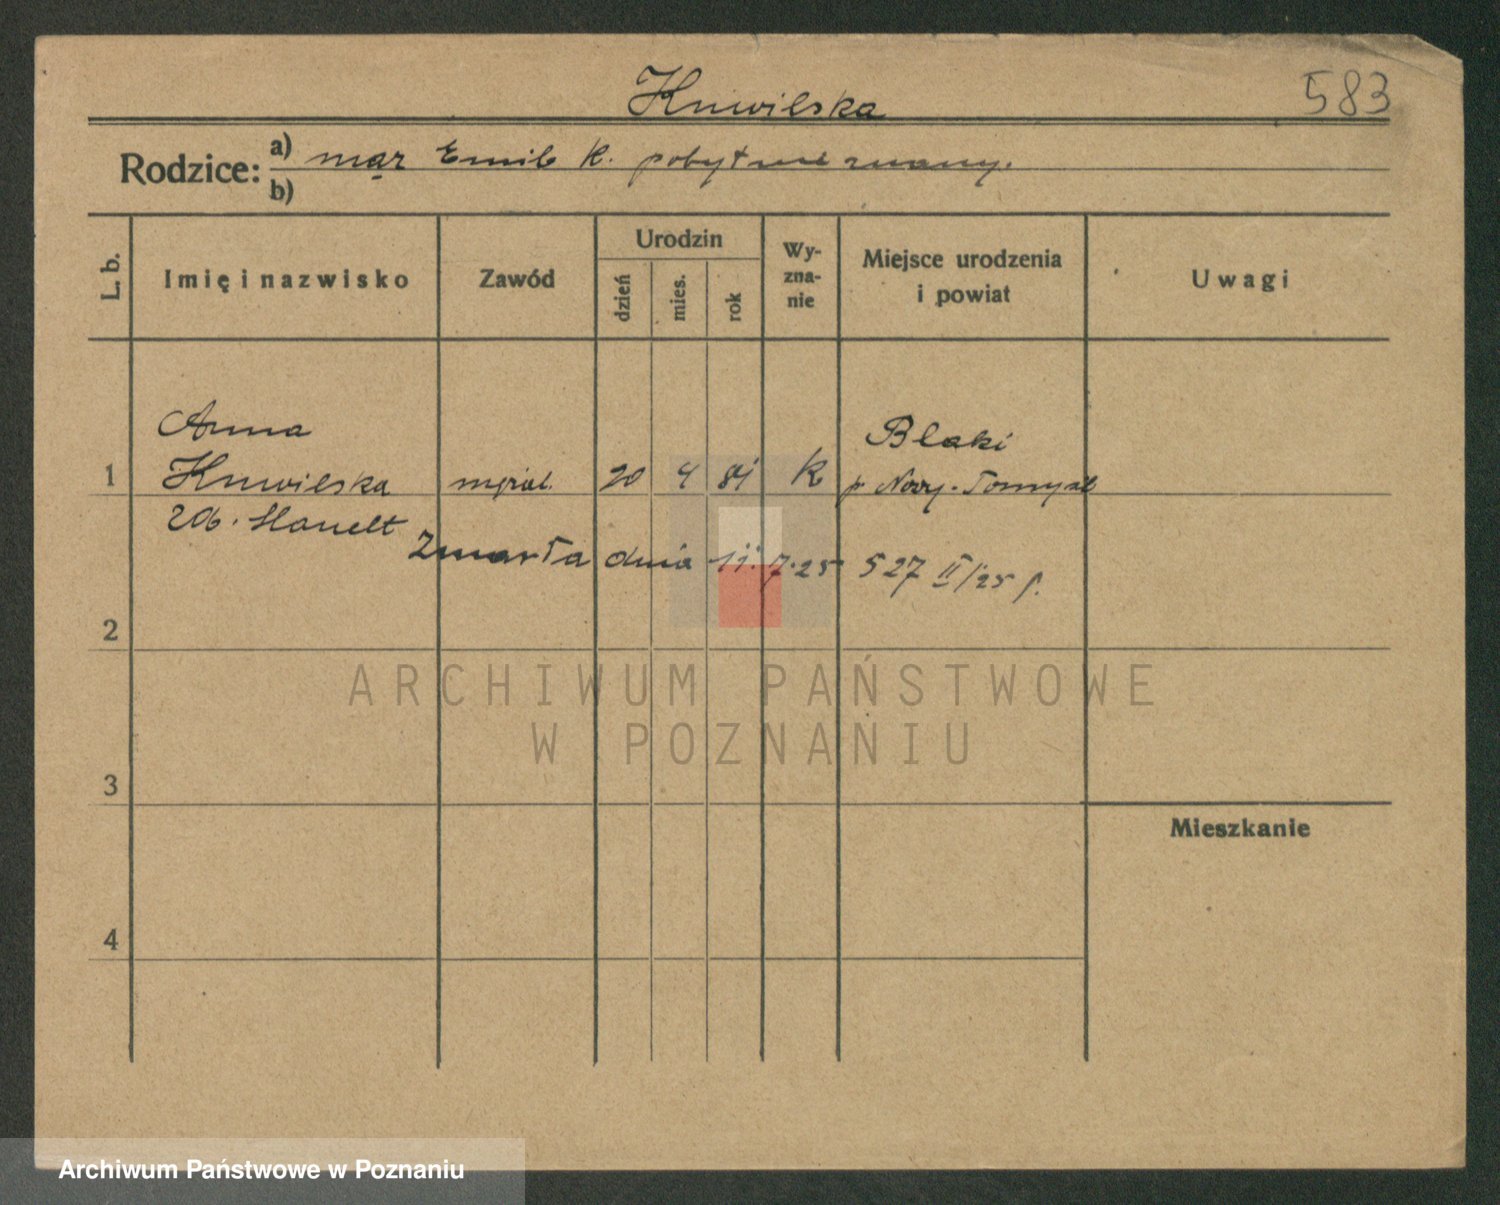 Kniwilska
583
Rodzice:
a) mąż Emil K. pobyt nie znany.
b)
L. b.
Imię i nazwisko
Zawód
Urodzin
dzień
mies.
rok
Wy-
zna-
nie
Miejsce urodzenia
i powiat
Uwagi
Anna
Blaki
1 Kniwilska 20 4 81 K p Nowy-Tomyśl
zob. Hanelt
Zmarła dnia 11. 7. 25 527 II/25 f.
2
ARCHIWUM PAŃSTWOWE
W POZNANIU
3
Mieszkanie
4
Archiwum Państwowe w Poznaniu